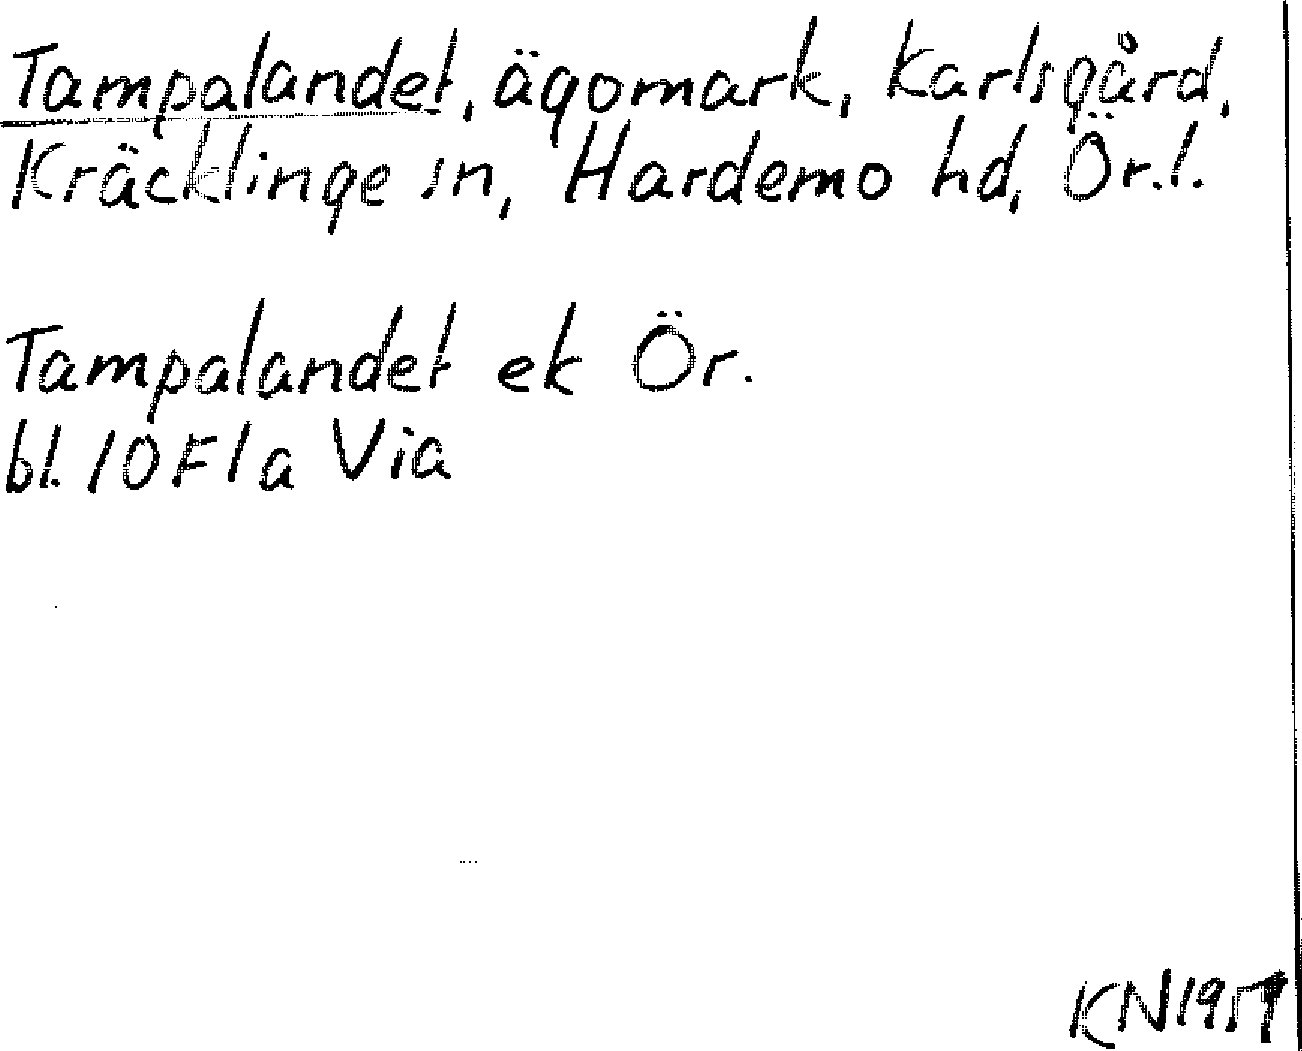 Tampalandet, ägomark, Karlsgård,
Kräcklinge sn, Hardemo hd, Ör.l.
Tampalandet ek Ör.
bl. 10F1a Via